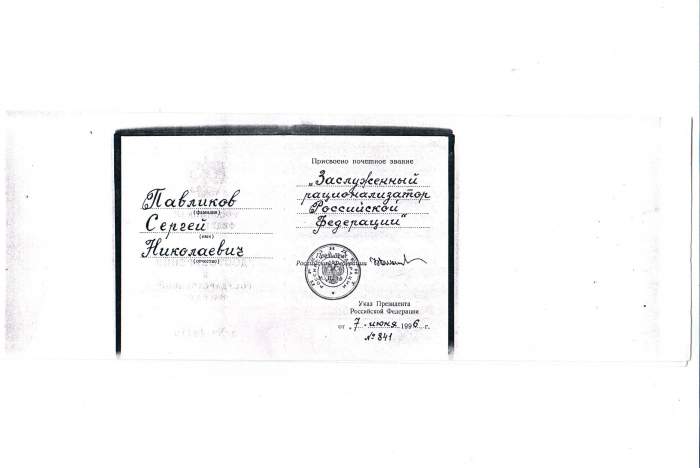 Павликов
(фамилия)
Сергей
(имя)
Николаевич
(отчество)
Присвоено почетное звание
„Заслуженный
рационализатор
Российской
Федерации“
Президент
Российской Федерации
Указ Президента
Российской Федерации
от „7“ июня 1996 г.
№ 841